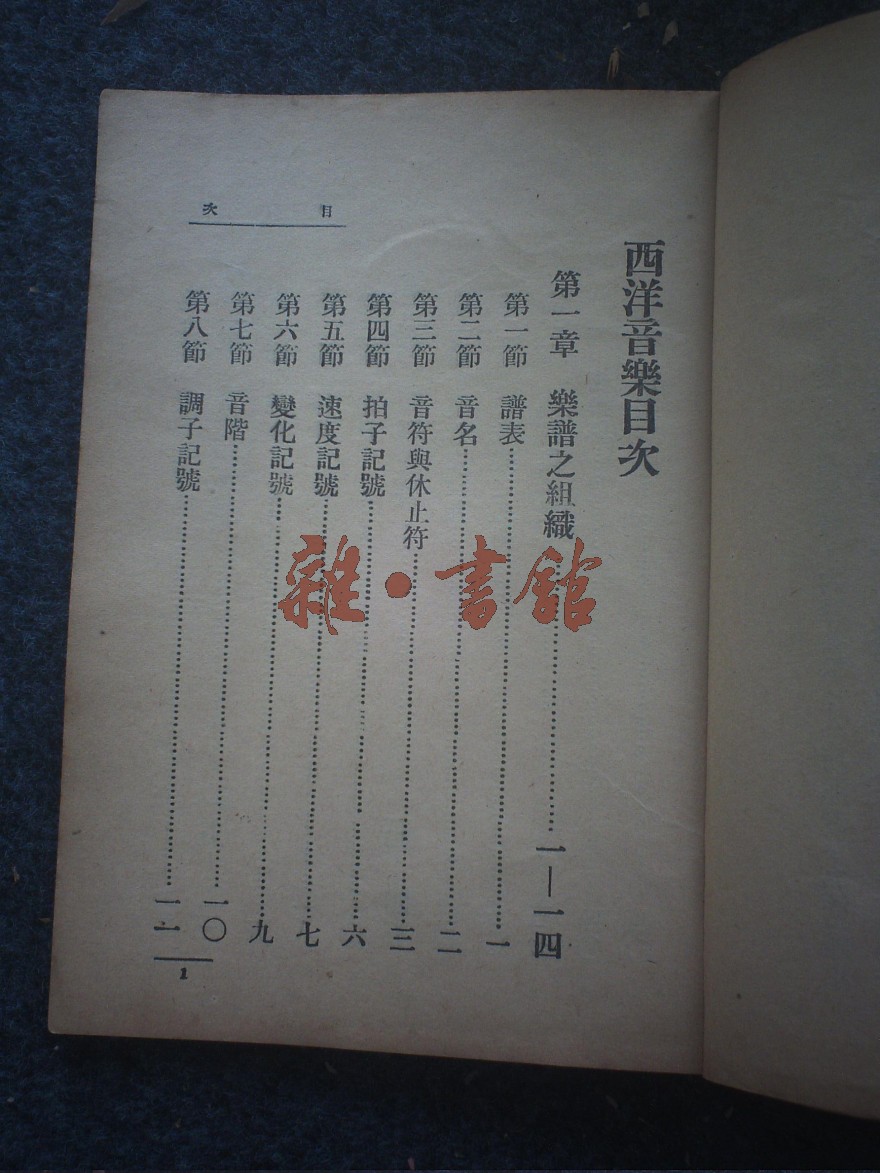 西洋音樂目次
第一章 樂譜之組織……一—一四
第一節 譜表……一
第二節 音名……二
第三節 音符與休止符……三
第四節 拍子記號……六
第五節 速度記號……七
第六節 變化記號……九
第七節 音階……一〇
第八節 調子記號……一一
目次
1
雜·書館